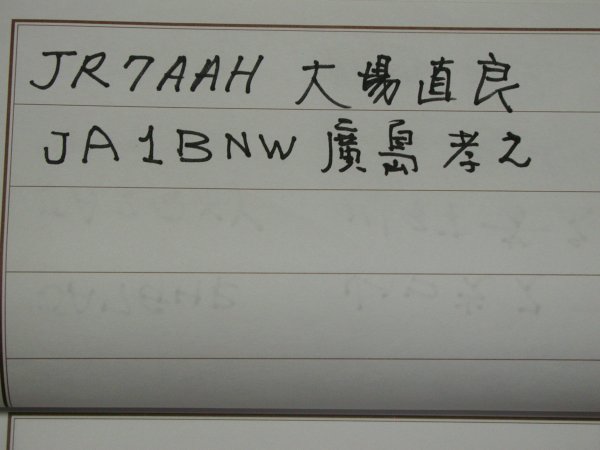 JR7AAH 大場直良
JA1BNW 廣島孝之